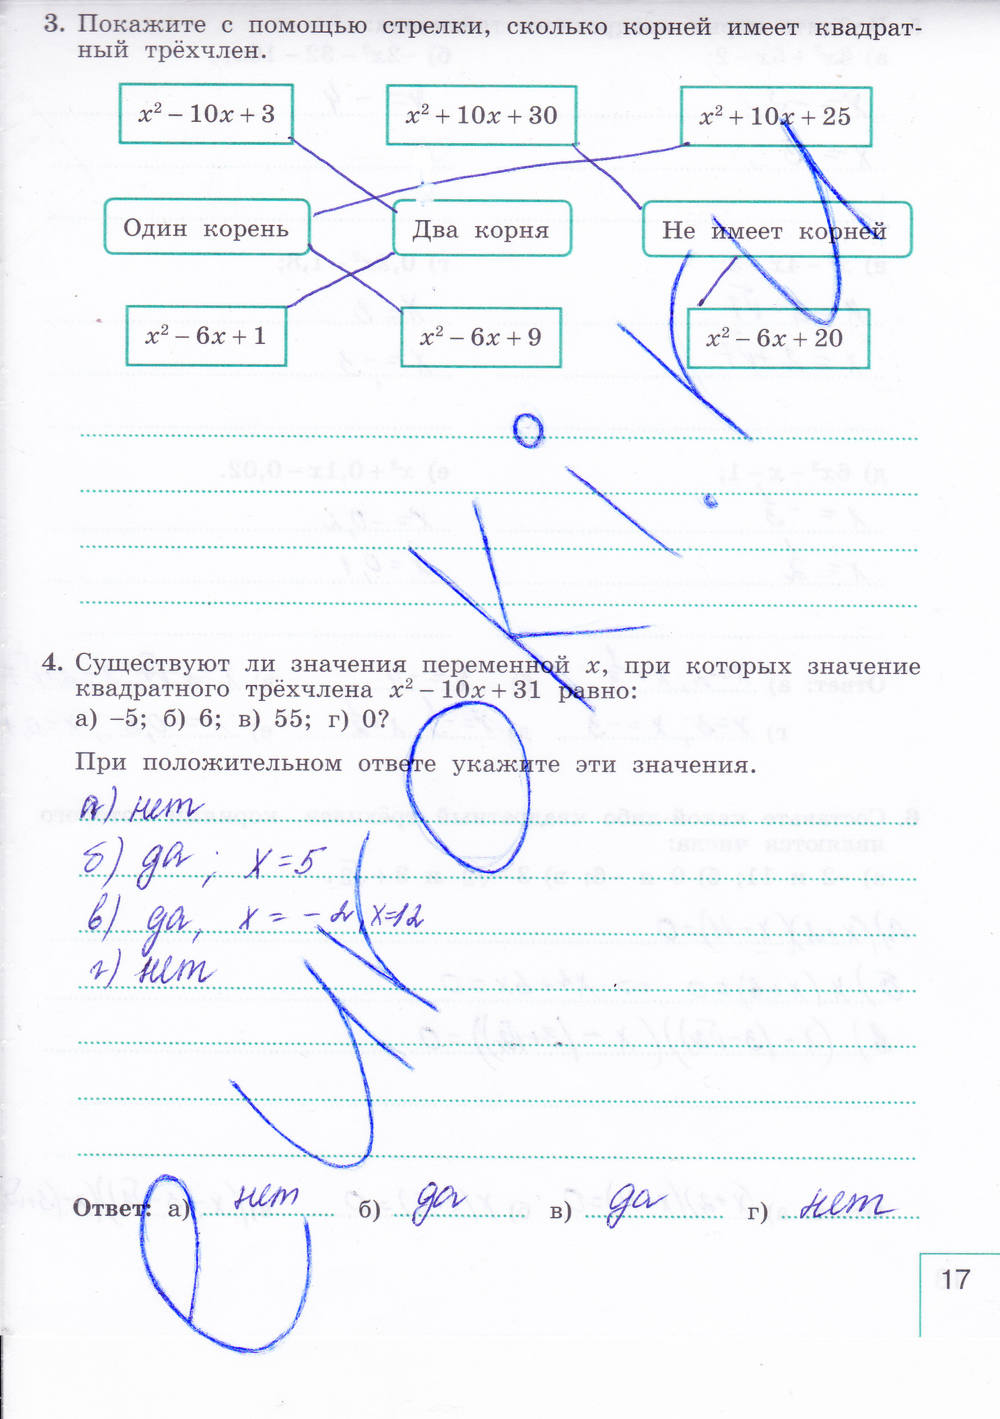 3. Покажите с помощью стрелки, сколько корней имеет квадрат-
ный трёхчлен.
x² – 10x + 3 x² + 10x + 30 x² + 10x + 25
Один корень Два корня Не имеет корней
x² – 6x + 1 x² – 6x + 9 x² – 6x + 20
4. Существуют ли значения переменной x, при которых значение
квадратного трёхчлена x² – 10x + 31 равно:
а) –5; б) 6; в) 55; г) 0?
При положительном ответе укажите эти значения.
а) нет
б) да ; x = 5
в) да, x = – 2, x=12
г) нет
Ответ: а) нет б) да в) да г) нет
17